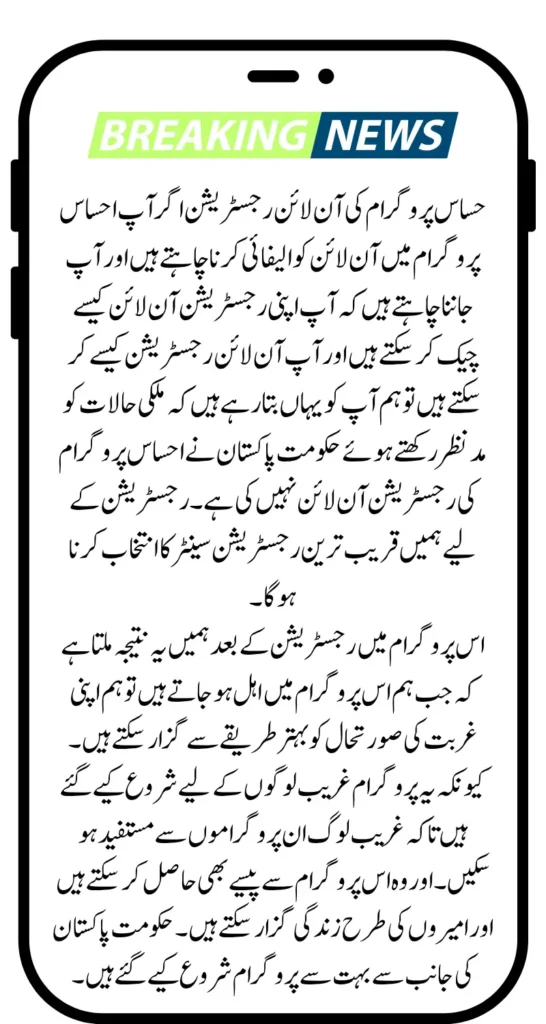 BREAKING NEWS
حساس پروگرام کی آن لائن رجسٹریشن اگر آپ احساس
پروگرام میں آن لائن کوالیفائی کرنا چاہتے ہیں اور آپ
جاننا چاہتے ہیں کہ آپ اپنی رجسٹریشن آن لائن کیسے
چیک کر سکتے ہیں اور آپ آن لائن رجسٹریشن کیسے کر
سکتے ہیں تو ہم آپ کو یہاں بتا رہے ہیں کہ ملکی حالات کو
مد نظر رکھتے ہوئے حکومت پاکستان نے احساس پروگرام
کی رجسٹریشن آن لائن نہیں کی ہے۔ رجسٹریشن کے
لیے ہمیں قریب ترین رجسٹریشن سینٹر کا انتخاب کرنا
ہوگا۔
اس پروگرام میں رجسٹریشن کے بعد ہمیں یہ نتیجہ ملتا ہے
کہ جب ہم اس پروگرام میں اہل ہو جاتے ہیں تو ہم اپنی
غربت کی صورتحال کو بہتر طریقے سے گزار سکتے ہیں۔
کیونکہ یہ پروگرام غریب لوگوں کے لیے شروع کیے گئے
ہیں تاکہ غریب لوگ ان پروگراموں سے مستفید ہو
سکیں۔ اور وہ اس پروگرام سے پیسے بھی حاصل کر سکتے ہیں
اور امیروں کی طرح زندگی گزار سکتے ہیں۔ حکومت پاکستان
کی جانب سے بہت سے پروگرام شروع کیے گئے ہیں۔